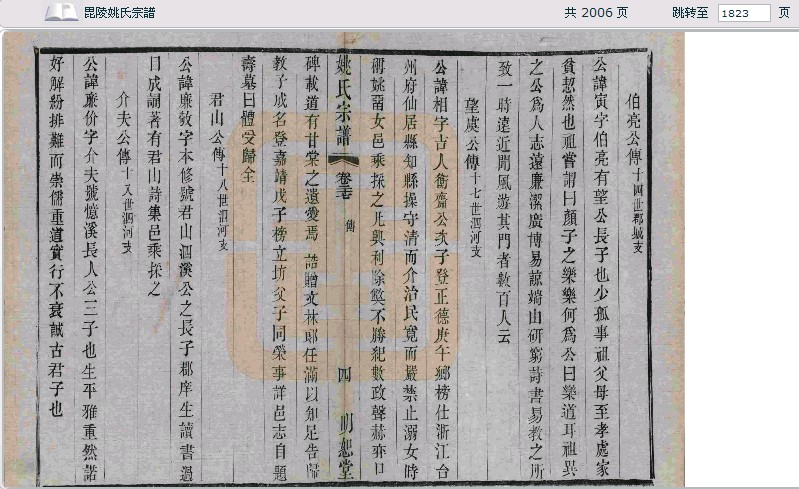 毘陵姚氏宗譜
共 2006 页
跳转至 1823 页
伯亮公傳十四世郡城支
公諱寅字伯亮有望公長子也少孤事祖父母至孝處家
貧恝然也祖嘗謂曰顏子之樂樂何為公曰樂道耳祖異
之公為人志遠廉潔廣博易諒端由研窮詩書易教之所
致一時遠近聞風遊其門者數百人云
望虞公傳十七世泗河支
公諱相字古人衡齋公次子登正德庚午鄉榜仕浙江台
州府仙居縣知縣操守清而介治民寬而嚴禁止溺女時
稱姚爾女邑乘採之凡興利除獘不勝紀數政聲赫亦口
碑載道有甘棠之遺愛焉 誥贈文林郎任滿以知足告歸
教子成名登嘉靖戊子榜立坊父子同榮事詳邑志自題
壽墓曰體受歸全
姚氏宗譜 卷三七 傳 四 明恕堂
君山公傳十八世泗河支
公諱廉敦字本修號君山泗溪公之長子郡庠生讀書過
目成誦著有君山詩集邑乘採之
介夫公傳十八世泗河支
公諱廉价字介夫號憶溪長人公三子也生平雅重然諾
好解紛排難而崇儒重道實行不衰誠古君子也